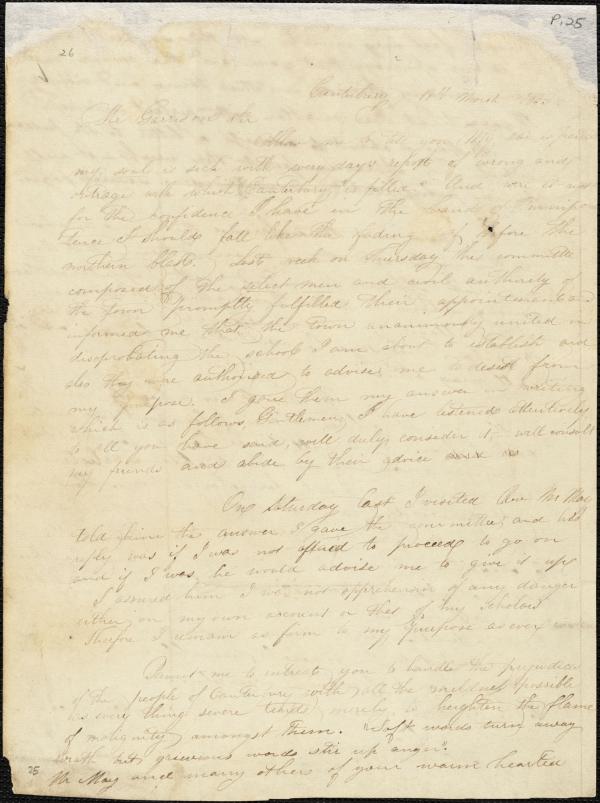 P. 25
26
Canterbury, March
Mr Garrison Sir
Allow me to tell you
my soul is sick with every day's report of wrong and
outrage with which Canterbury is filled. And were it not
for the confidence I have in the hand of Omnipo-
tence I should fall like the fading before the
northern blast. Last week on Thursday the committee
composed of the select men and civil authority of
the town promptly fulfilled their appointment and
informed me that the Town unanimously united in
disprobating the school I am about to establish and
also they were authorised to advise me to desist from
my purpose. I gave them my answer in writing
which is as follows, Gentlemen, I have listened attentively
to all you have said, will duly consider it, will consult
my friends and abide by their advice
On Saturday last I visited Rev Mr May
told him the answer I gave the committee, and his
reply was if I was not affraid to proceed to go on
and if I was he would advise me to give it up
I assured him I was not apprehensive of any danger
either on my own account or that of my Scholars
Therefore I remain as firm to my purpose as ever
Permit me to intreat you to handle the prejudices
of the people of Canterbury with all the mildness possible
as every thing severe tends merely to heighten the flame
of malignity amongst them. "Soft words turn away
wrath but grievous words stir up anger".
Mr May and many others of your warm hearted
25